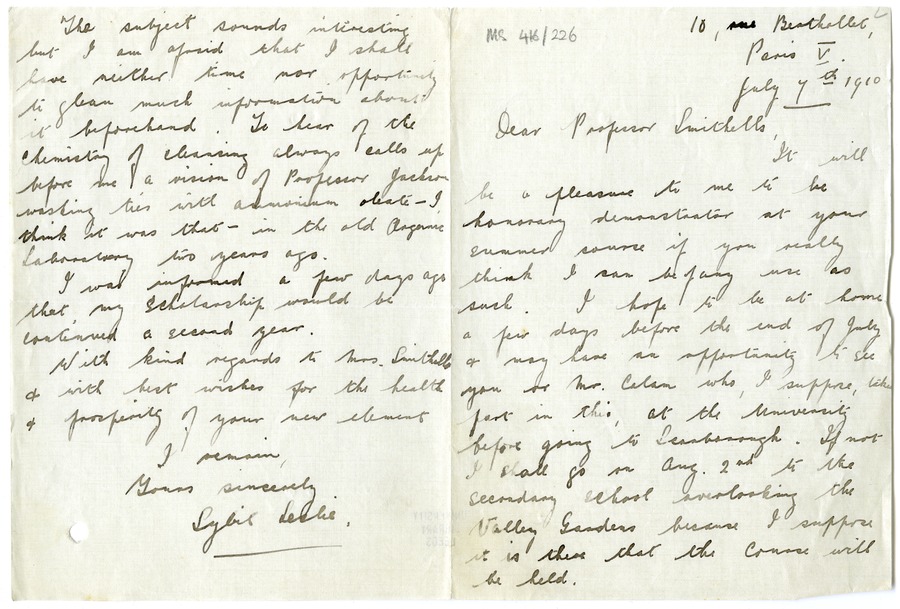 MS 416/226
10, rue Berthollet,
Paris V.
July 7th 1910
Dear Professor Smithells,
It will
be a pleasure to me to be
honorary demonstrator at your
summer course if you really
think I can be of any use as
such. I hope to be at home
a few days before the end of July
& may have an opportunity to see
you or Mr. Calam who, I suppose, takes
part in this, at the University
before going to Scarborough. If not
I shall go on Aug. 2nd to the
secondary school overlooking the
Valley Gardens because I suppose
it is there that the Course will
be held.
The subject sounds interesting
but I am afraid that I shall
have neither time nor opportunity
to glean much information about
it beforehand. To hear of the
chemistry of cleansing always calls up
before me a vision of Professor Jackson
washing ties with ammonium oleate – I
think it was that – in the old Organic
Laboratory two years ago.
I was informed a few days ago
that my Scholarship would be
continued a second year.
With kind regards to Mrs. Smithells
& with best wishes for the health
& prosperity of your new element
I remain,
Yours sincerely
Sybil Leslie.